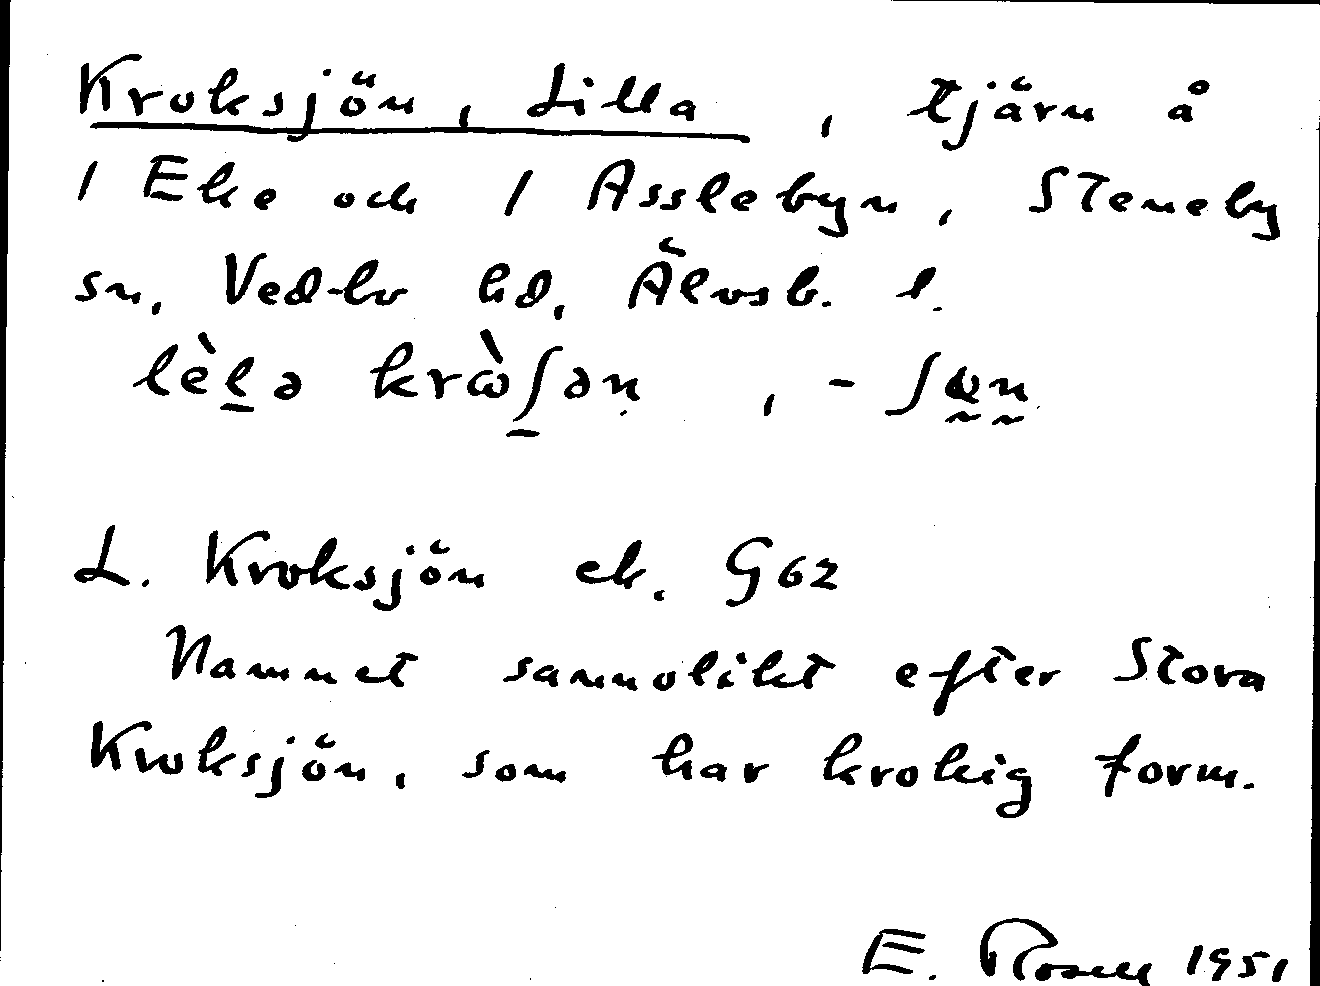 Kroksjön, Lilla, tjärn å
1 Eke och 1 Asslebyn, Steneby
sn, Vedbo hd, Älvsb. l.
lèl̠ə krὼʃ̠ən̥, -ʃɷ̰n̰
L. Kroksjön ek. G62
Namnet sannolikt efter Stora
Kroksjön, som har krokig form.
E. Rosell 1951